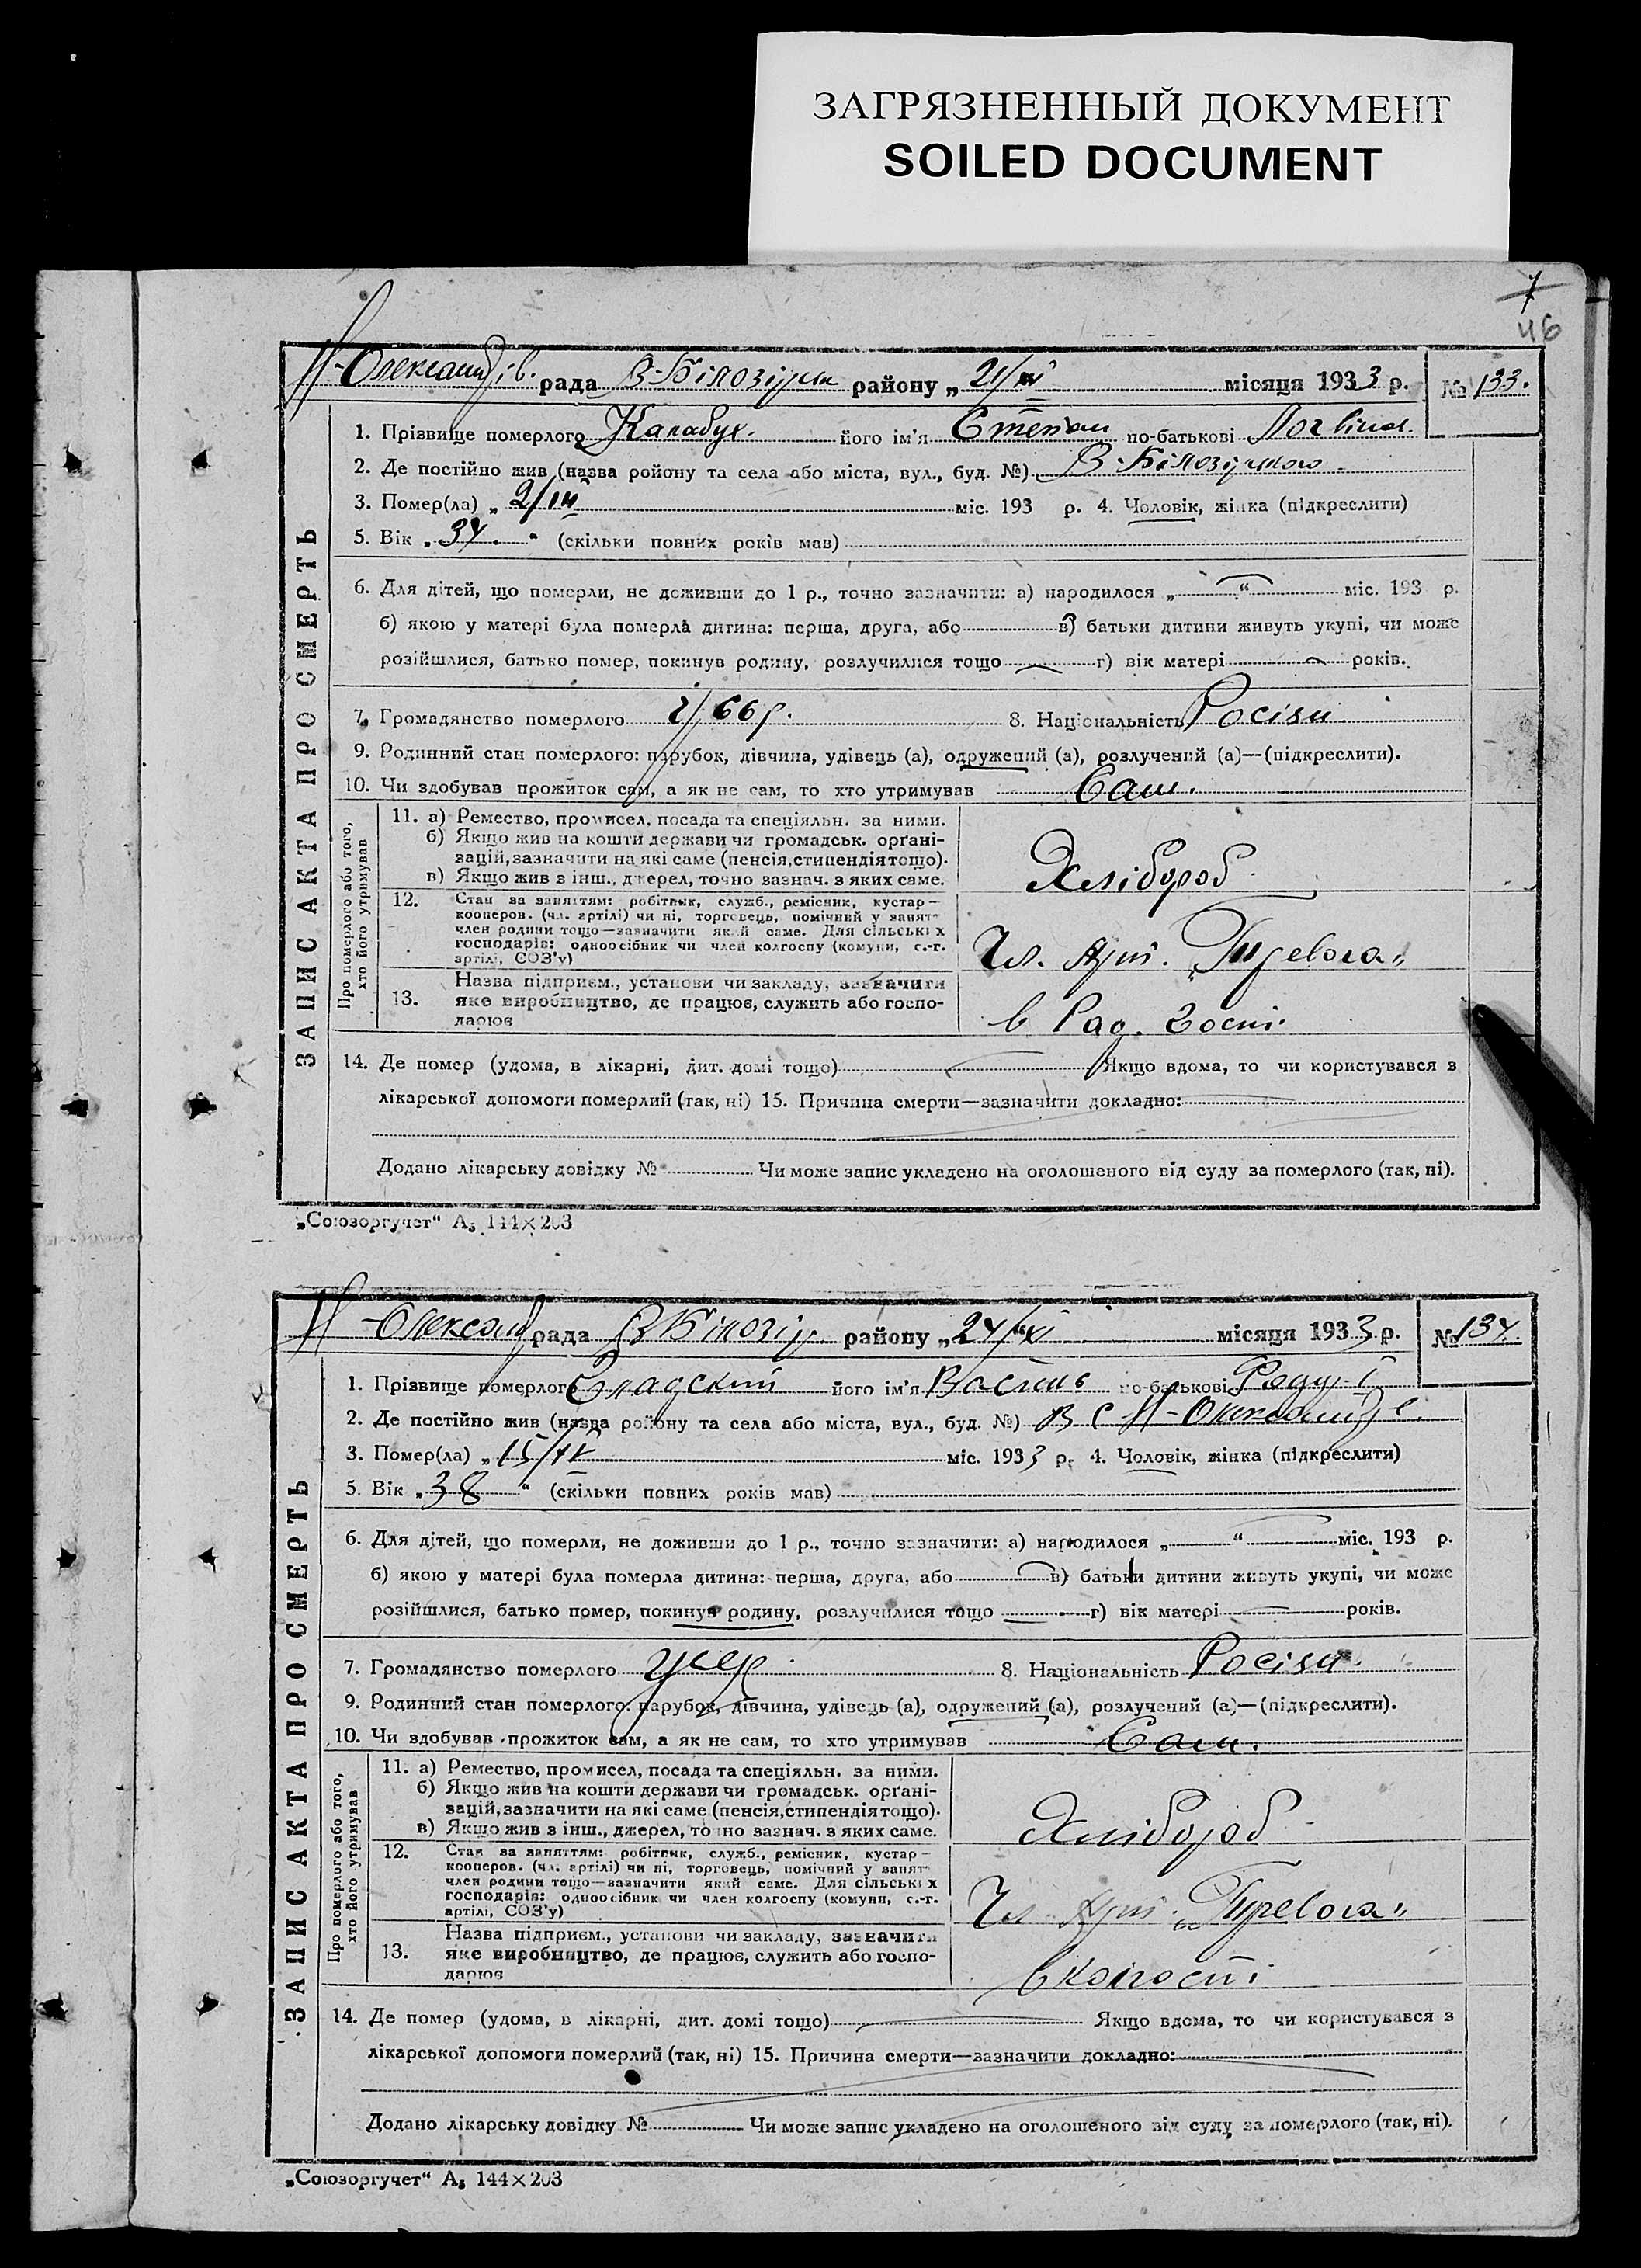 ЗАГРЯЗНЕННЫЙ ДОКУМЕНТ
SOILED DOCUMENT
7
46
Н-Олександрів. рада В-Білозірки району „ 21/XI місяця 1933 р. № 133.
ЗАПИС АКТА ПРО СМЕРТЬ
1. Прізвище померлого його ім'я Степан по-батькові
2. Де постійно жив (назва ройону та села або міста, вул., буд. №) В-Білозірского
3. Помер(ла) „ 2/III міс. 193 р. 4. Чоловік, жінка (підкреслити)
5. Вік „ 34. “ (скільки повних років мав)
6. Для дітей, що померли, не доживши до 1 р., точно зазначити: а) народилося „ “ міс. 193 р.
б) якою у матері була померла дитина: перша, друга, або в) батьки дитини живуть укупі, чи може
розійшлися, батько помер, покинув родину, розлучилися тощо г) вік матері років.
7. Громадянство померлого 8. Національність Росіян
9. Родинний стан померлого: парубок, дівчина, удівець (а), одружений (а), розлучений (а)—(підкреслити).
10. Чи здобував прожиток сам, а як не сам, то хто утримував Сам.
Про померлого або того, хто його утримував
11. а) Ремество, промисел, посада та спеціяльн. за ними.
б) Якщо жив на кошти держави чи громадськ. орґані-
зацій, зазначити на які саме (пенсія, стипендія тощо).
в) Якщо жив з інш., джерел, точно зазнач. з яких саме.
Хлібороб
12. Стан за заняттям: робітник, служб., ремісник, кустар—
кооперов. (чл. артілі) чи ні, торговець, помічний у занят-
член родини тощо—зазначити який саме. Для сільських
господарів: одноосібник чи член колгоспу (комуни, с.-г.
артілі, СОЗ'у)
Чл. Арт.
13. Назва підприєм., установи чи закладу, зазначити
яке виробництво, де працює, служить або госпо-
дарює
в Рад. госпі
14. Де помер (удома, в лікарні, дит. домі тощо) Якщо вдома, то чи користувався з
лікарської допомоги померлий (так, ні) 15. Причина смерти—зазначити докладно:
Додано лікарську довідку № Чи може запис укладено на оголошеного від суду за померлого (так, ні).
„Союзоргучет“ А₅ 144×203
Н-Олександ рада В Білозір. району „ 24/XI місяця 1933 р. № 134.
ЗАПИС АКТА ПРО СМЕРТЬ
1. Прізвище померлого його ім'я Василь по-батькові
2. Де постійно жив (назва ройону та села або міста, вул., буд. №) В с Н-Олександ
3. Помер(ла) „ 15/IV міс. 1933 р. 4. Чоловік, жінка (підкреслити)
5. Вік „ 38 “ (скільки повних років мав)
6. Для дітей, що померли, не доживши до 1 р., точно зазначити: а) народилося „ “ міс. 193 р.
б) якою у матері була померла дитина: перша, друга, або в) батьки дитини живуть укупі, чи може
розійшлися, батько помер, покинув родину, розлучилися тощо г) вік матері років.
7. Громадянство померлого 8. Національність Росіян
9. Родинний стан померлого: парубок, дівчина, удівець (а), одружений (а), розлучений (а)—(підкреслити).
10. Чи здобував прожиток сам, а як не сам, то хто утримував Сам.
Про померлого або того, хто його утримував
11. а) Ремество, промисел, посада та спеціяльн. за ними.
б) Якщо жив на кошти держави чи громадськ. орґані-
зацій, зазначити на які саме (пенсія, стипендія тощо).
в) Якщо жив з інш., джерел, точно зазнач. з яких саме.
Хлібороб
12. Стан за заняттям: робітник, служб., ремісник, кустар—
кооперов. (чл. артілі) чи ні, торговець, помічний у занят-
член родини тощо—зазначити який саме. Для сільських
господарів: одноосібник чи член колгоспу (комуни, с.-г.
артілі, СОЗ'у)
Чл Арт.
13. Назва підприєм., установи чи закладу, зазначити
яке виробництво, де працює, служить або госпо-
дарює
в колгоспі
14. Де помер (удома, в лікарні, дит. домі тощо) Якщо вдома, то чи користувався з
лікарської допомоги померлий (так, ні) 15. Причина смерти—зазначити докладно:
Додано лікарську довідку № Чи може запис укладено на оголошеного від суду за померлого (так, ні).
„Союзоргучет“ А₅ 144×203